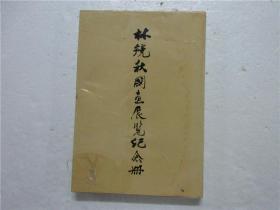 林镜秋国画展览纪念册